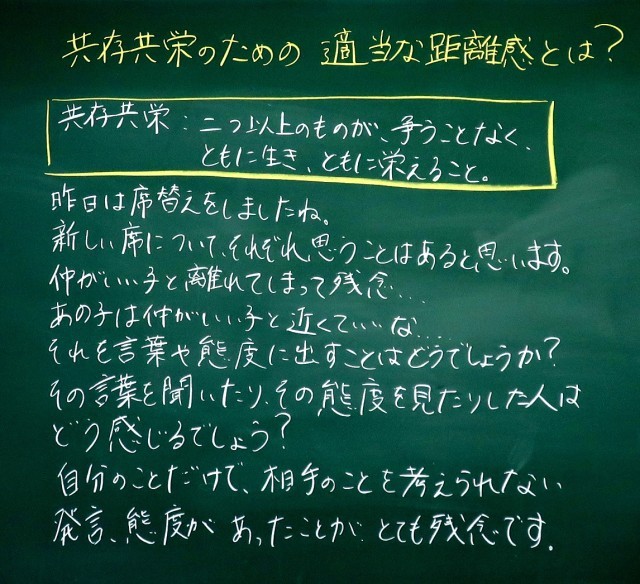 共存共栄のための 適当な距離感とは？
共存共栄：二つ以上のものが、争うことなく、
ともに生き、ともに栄えること。
昨日は席替えをしましたね。
新しい席について、それぞれ思うことはあると思います。
仲がいい子と離れてしまって残念…
あの子は仲がいい子と近くていいな…
それを言葉や態度に出すことはどうでしょうか？
その言葉を聞いたり、その態度を見たりした人は
どう感じるでしょう？
自分のことだけで、相手のことを考えられない
発言、態度があったことがとても残念です。